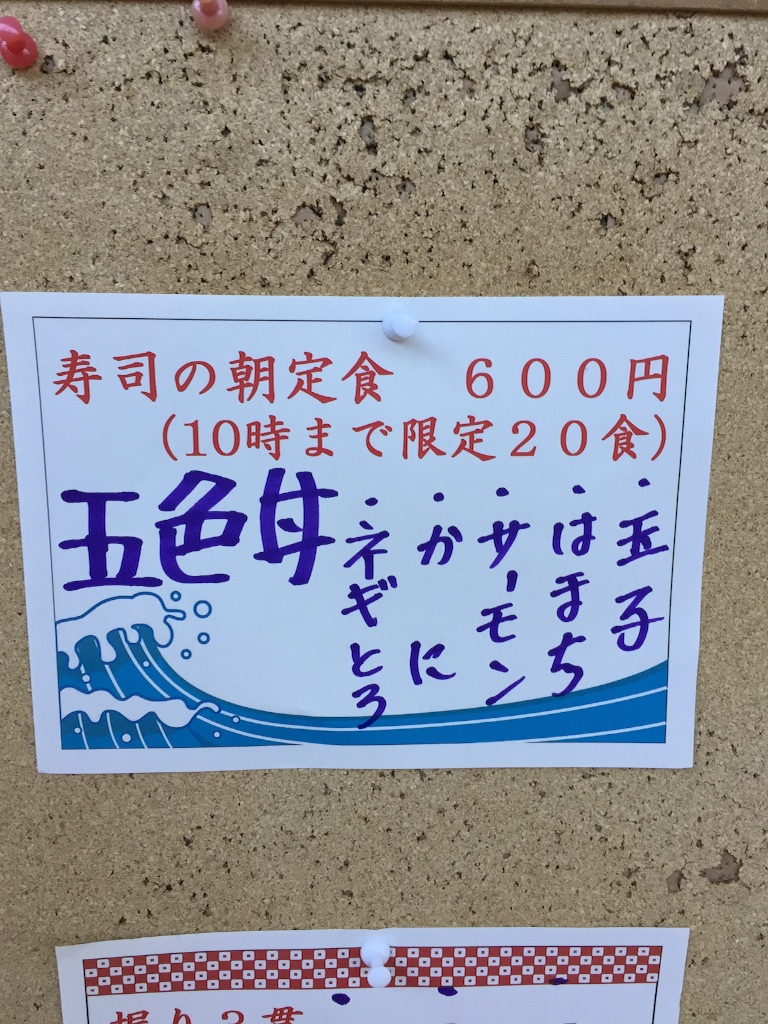 寿司の朝定食　６００円
(10時まで限定２０食)
五色丼
・玉子
・はまち
・サーモン
・かに
・ネギとろ
握り３貫